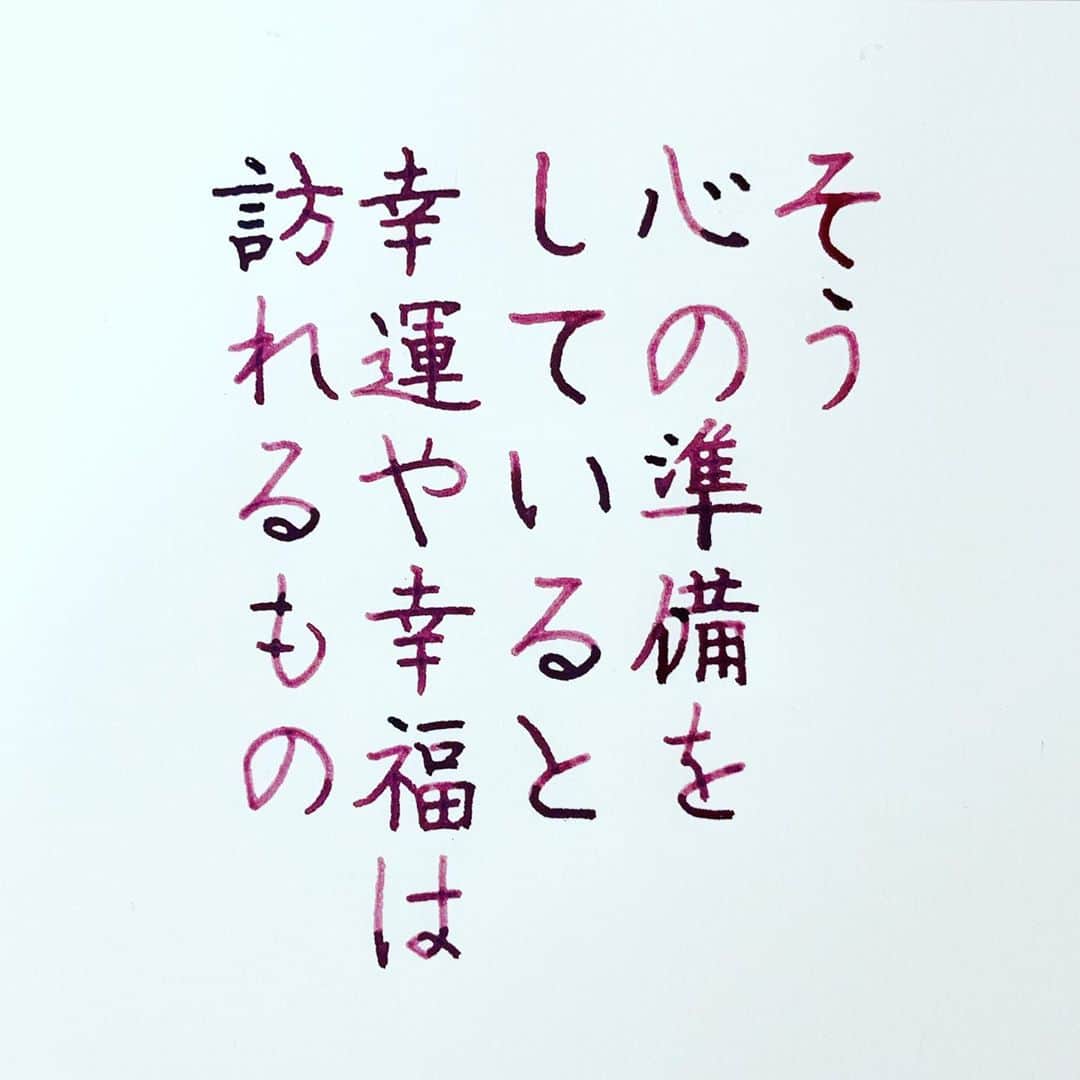 そう
心の準備を
していると
幸運や幸福は
訪れるもの